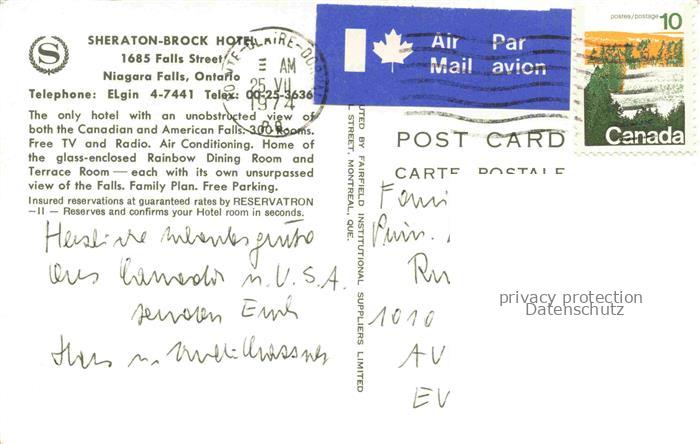 S
SHERATON-BROCK HOTEL
1685 Falls Street
Niagara Falls, Ontario
Telephone: ELgin 4-7441 Telex: 00-25-3636
The only hotel with an unobstructed view of
both the Canadian and American Falls. 300 Rooms.
Free TV and Radio. Air Conditioning. Home of
the glass-enclosed Rainbow Dining Room and
Terrace Room — each with its own unsurpassed
view of the Falls. Family Plan. Free Parking.
Insured reservations at guaranteed rates by RESERVATRON
—II — Reserves and confirms your Hotel room in seconds.
Herzliche Urlaubsgrüße
aus Canada u. U.S.A.
senden Euch
Hans u.
AM
25 VII
1974
Air Par
Mail avion
postes/postage 10
Canada
POST CARD
CARTE POSTALE
UTED BY FAIRFIELD INSTITUTIONAL SUPPLIERS LIMITED
L STREET, MONTREAL, QUE.
Fami
1010
AV
EV
privacy protection
Datenschutz